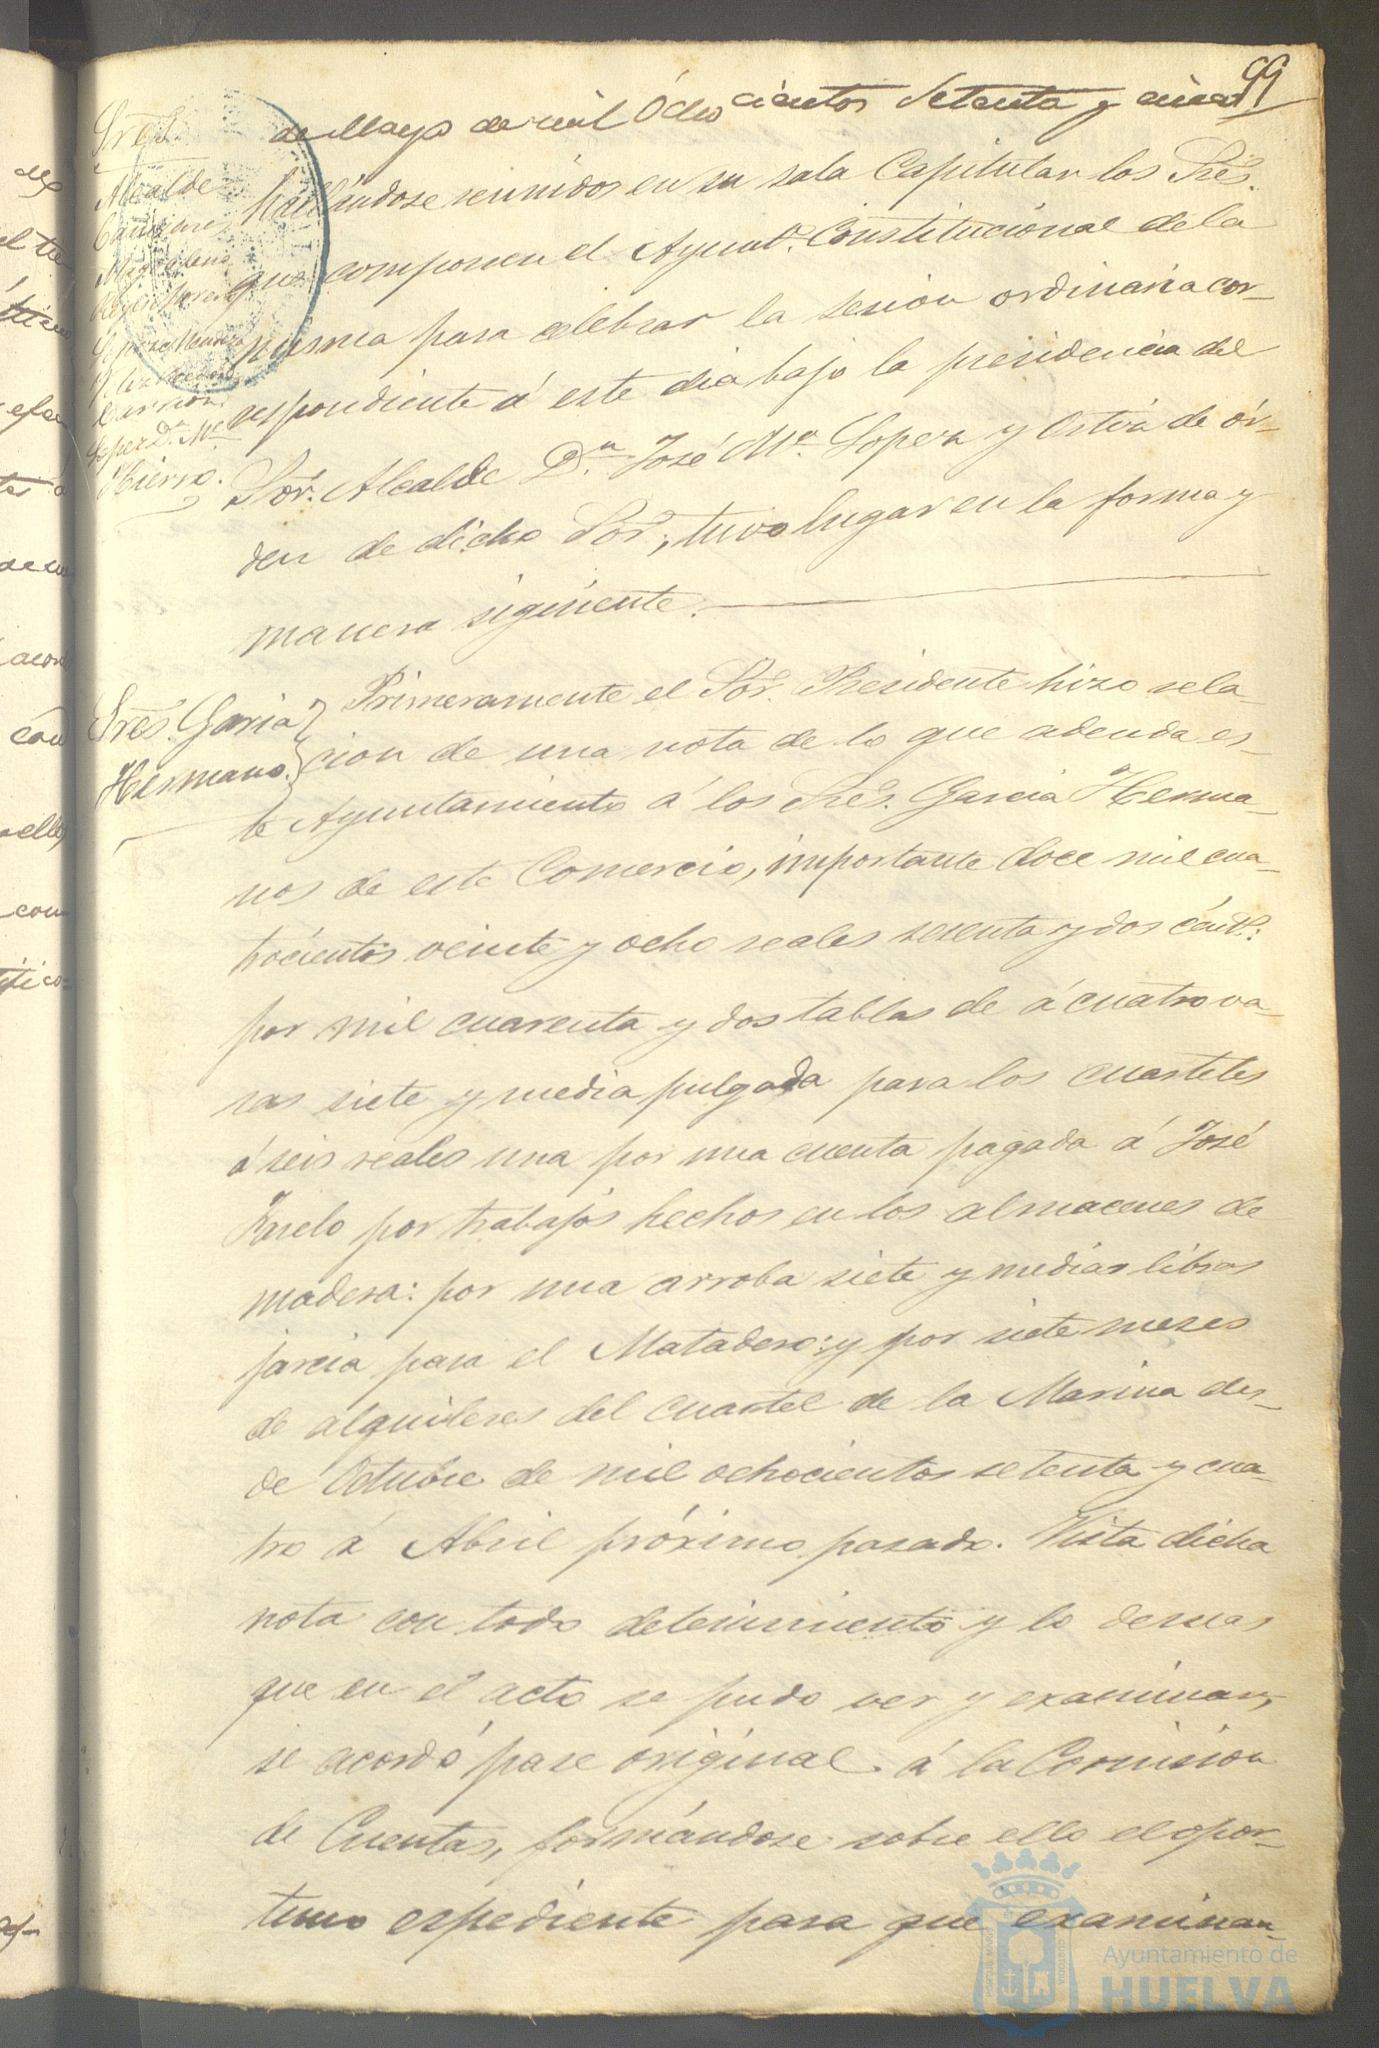 99
de Mayo de mil Ocho cientos setenta y cinco
hallándose reunidos en su sala Capitular los Sres.
que componen el Ayunto. Constitucional de la
misma para celebrar la sesion ordinaria cor-
respondiente á este dia bajo la presidencia del
Sor. Alcalde Dn. José Ma. Lopera y Ortiz de ór-
den de dicho Sor, tuvo lugar en la forma y
manera siguiente.
Sres.
Alcalde
Magdalena
Carrion
Hierro.
Sres. Garcia
Hermano.
Primeramente el Sor. Presidente hizo rela-
cion de una nota de lo que adeuda es-
te Ayuntamiento á los Sres. Garcia Herma-
nos de este Comercio, importante doce mil cua-
trocientos veinte y ocho reales sesenta y dos cénts:
por mil cuarenta y dos tablas de á cuatro va-
ras siete y media pulgada para los cuarteles
á seis reales una por una cuenta pagada á José
por trabajos hechos en los almacenes de
madera: por una arroba siete y medias libras
jarcia para el Matadero: y por siete meses
de alquileres del cuartel de la Marina des-
de Octubre de mil ochocientos setenta y cua-
tro á Abril próximo pasado. Vista dicha
nota con todo detenimiento y lo demas
que en el acto se pudo ver y examinar,
se acordó pase original á la Comision
de Cuentas, formándose sobre ello el opor-
tuno espediente para que examinan-
Ayuntamiento de
HUELVA